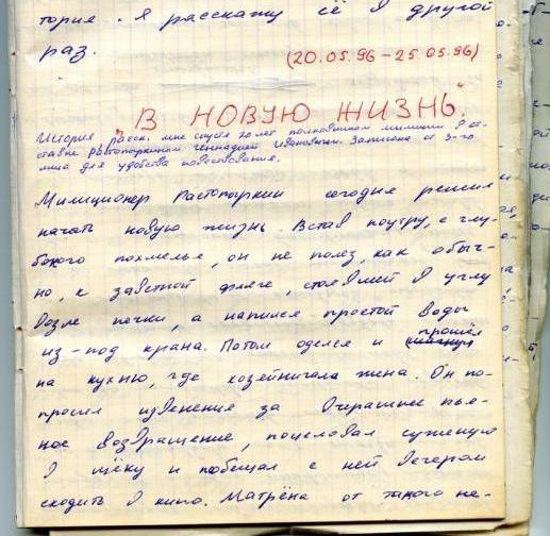 тория. Я расскажу её в другой
раз.
(20.05.96 - 25.05.96)
"В НОВУЮ ЖИЗНЬ."
История расск. мне спустя 20 лет полковником милиции в от-
ставке Растопыркиным Геннадием Ивановичем. Записана от 3-го
лица для удобства повествования.
Милиционер Растопыркин сегодня решил
начать новую жизнь. Встав поутру, с глу-
бокого похмелья, он не полез, как обыч-
но, к заветной фляге, стоявшей в углу
возле печки, а напился простой воды
из-под крана. Потом оделся и прошёл
на кухню, где хозяйничала жена. Он по-
просил извенения за вчерашнее пья-
ное возвращение, поцеловал суженую
в щёку и пообещал с ней вечером
сходить в кино. Матрёна от такого не-